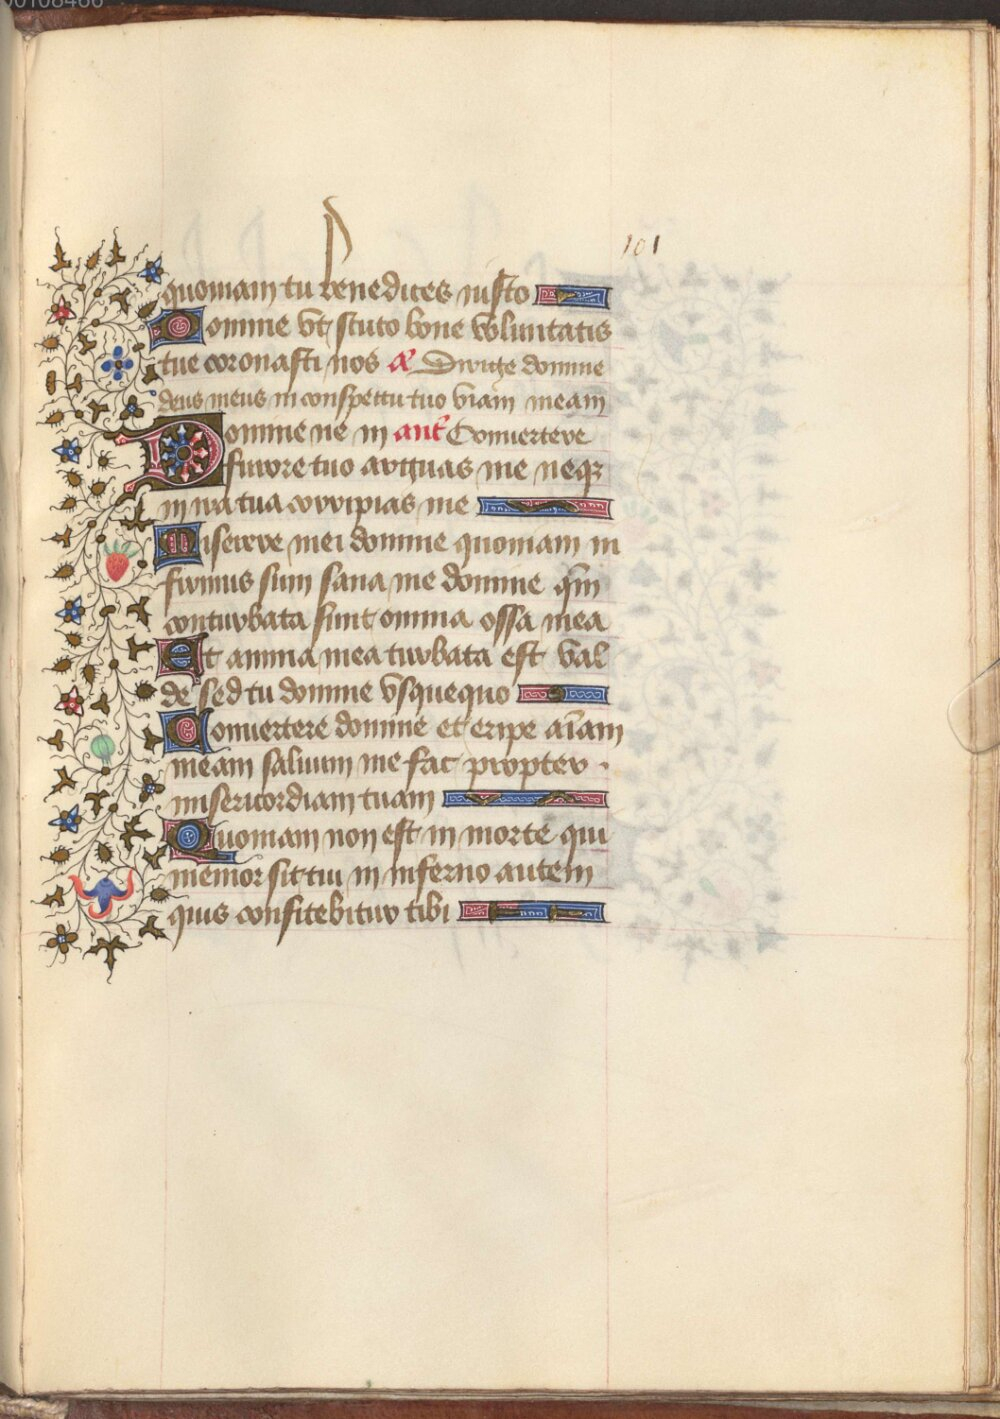 00108466
101
quoniam tu benedices iusto
Domine vt scuto bone voluntatis
tue coronasti nos a᷒ Dirige domine
deus meus in conspectu tuo viam meam
Domine ne in ant̄ Conuertere
furore tuo arguas me neqꝫ
in ira tua corripias me
Miserere mei domine quoniam in
firmus sum sana me domine qm̄
conturbata sunt omnia ossa mea
Et anima mea turbata est val
de sed tu domine vsquequo
Conuertere domine et eripe aīam
meam saluum me fac propter
misericordiam tuam
Quoniam non est in morte qui
memor sit tui in inferno autem
quis confitebitur tibi